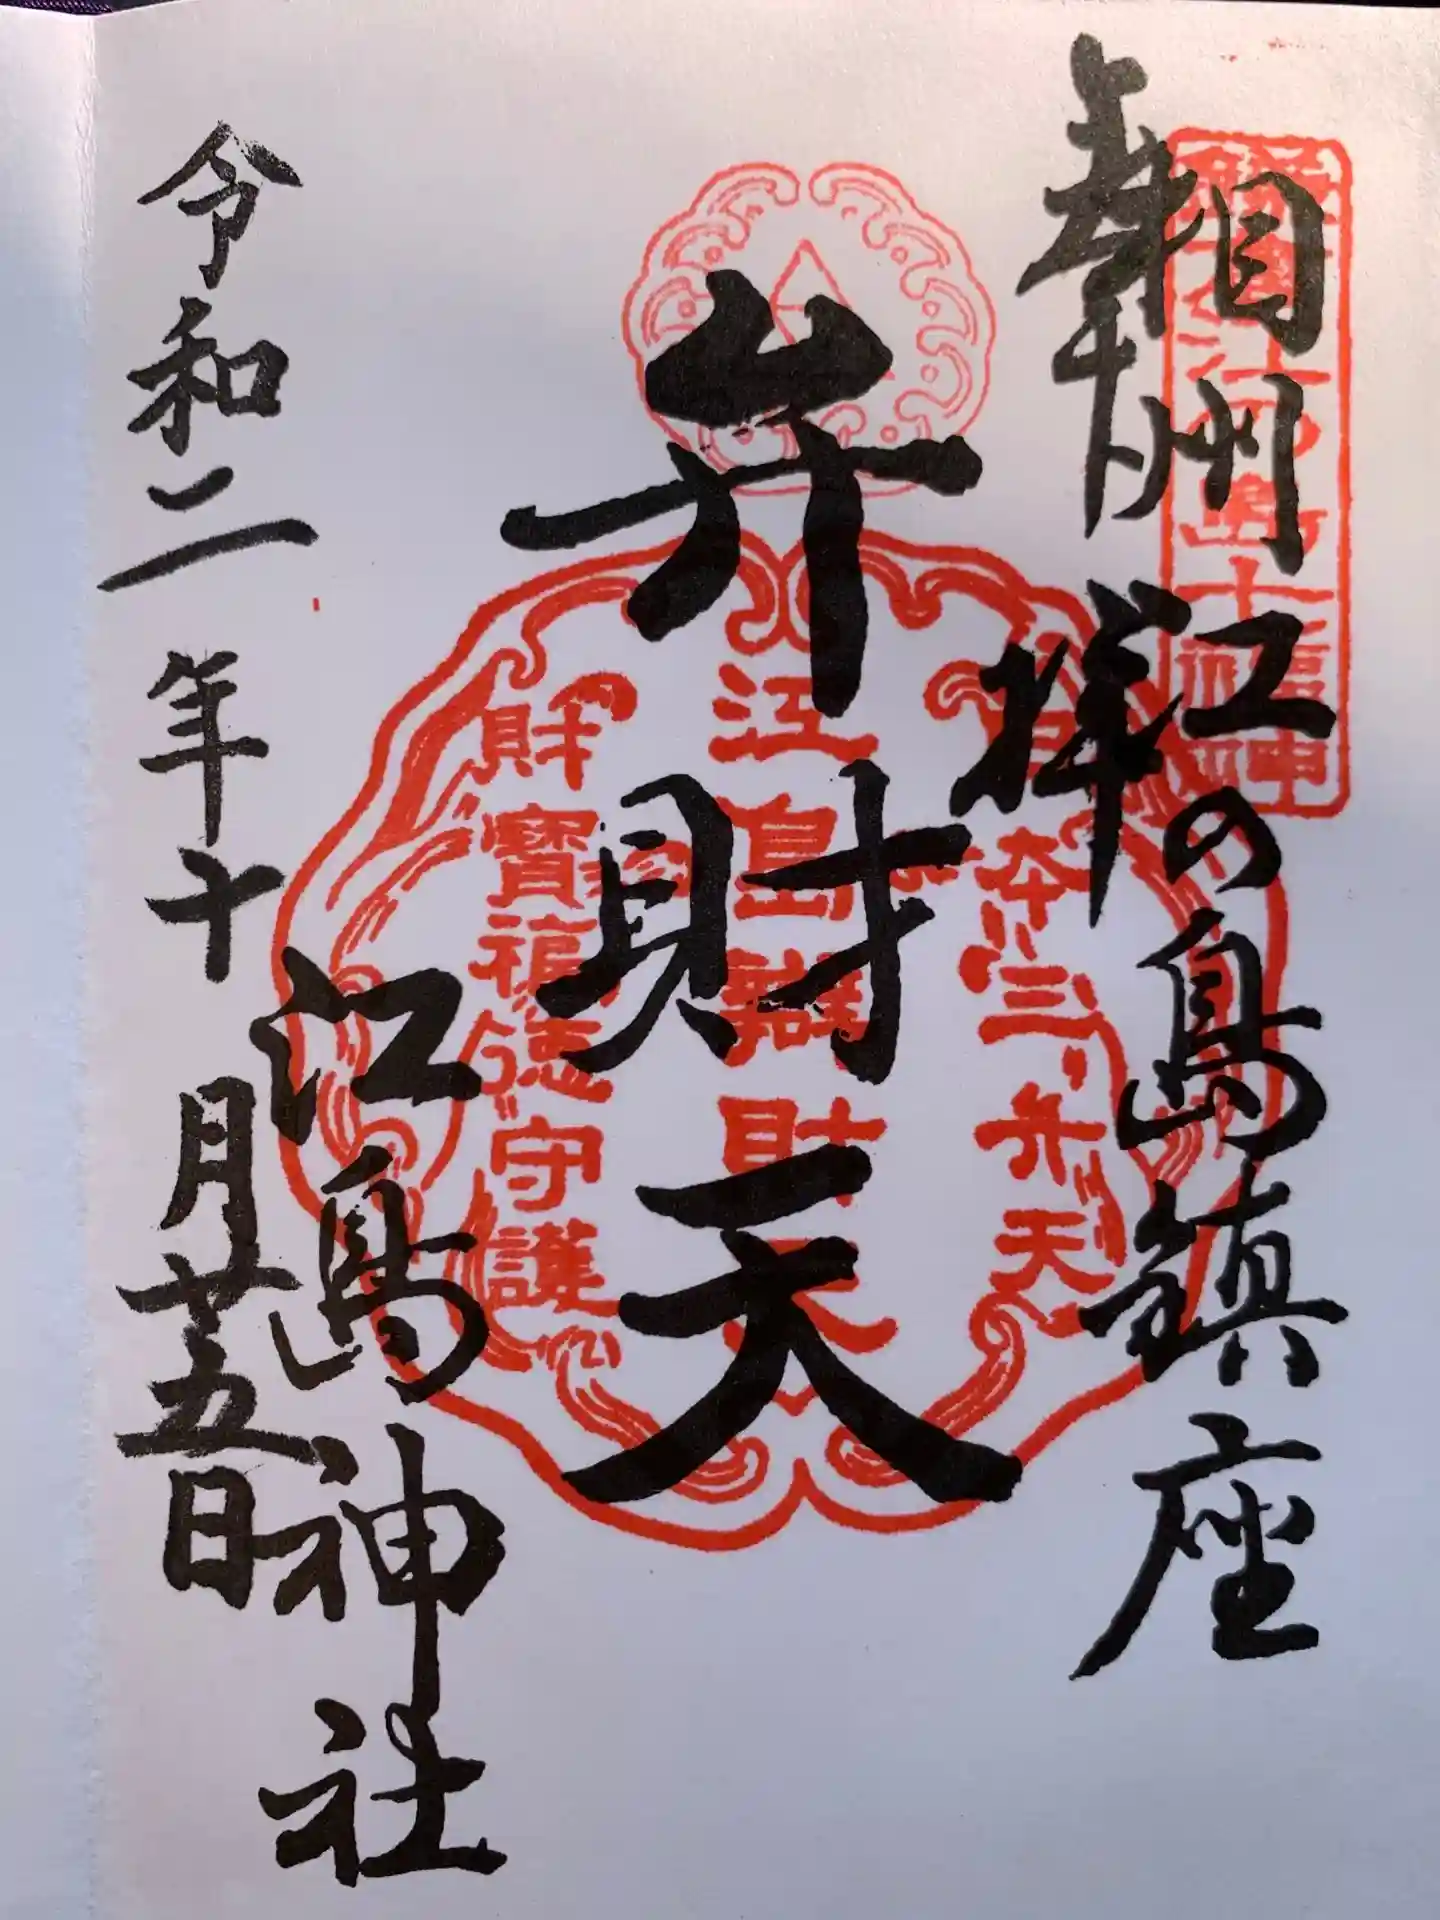 奉拝
相州江の島鎮座
弁財天
江島神社
令和二年十月廿五日
日本三弁天
江島辨財天
財寶福徳守護